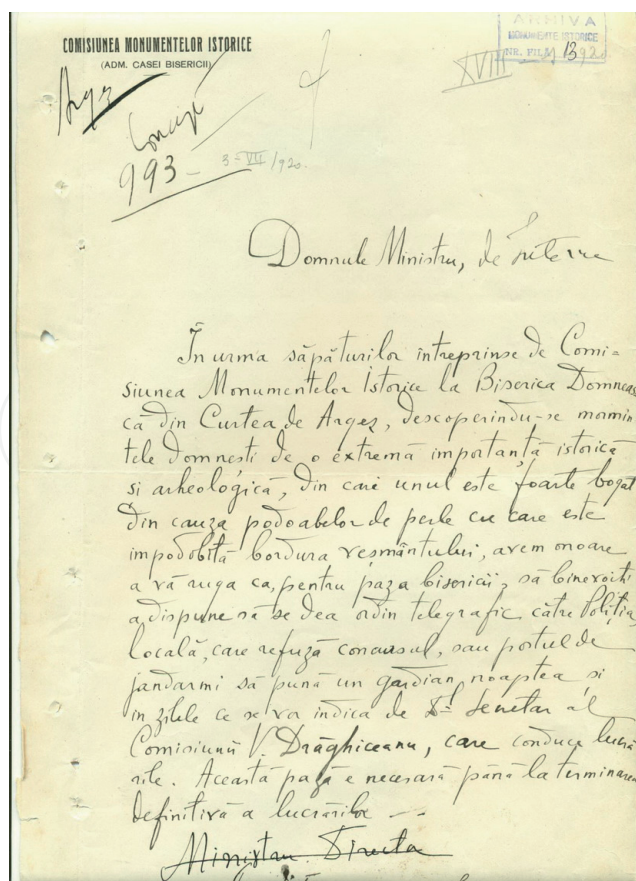 COMISIUNEA MONUMENTELOR ISTORICE
(ADM. CASEI BISERICII)
ARHIVA
MONUMENTE ISTORICE
NR. FILA 13
XVIII
Argeș
993 – 3-VII/920.
Domnule Ministru, de Interne
În urma săpăturilor întreprinse de Comi=
siunea Monumentelor Istorice la Biserica Domneas
că din Curtea de Argeș, descoperindu-se mormin
tele domnești de o extremă importanță istorică
și arheologică, din cari unul este foarte bogat
din cauza podoabelor de perle cu care este
împodobită bordura veșmântului, avem onoare
a vă ruga ca, pentru paza bisericii, să binevoiți
a dispune să se dea ordin telegrafic către Poliția
locală, care refuză concursul, sau postul de
jandarmi să pună un gardian noaptea și
in zilele ce se vor indica de Dl Secretar al
Comisiunii V. Drăghiceanu, care conduce lucră
rile. Această pază e necesară până la terminarea
definitivă a lucrărilor —
Ministru Director